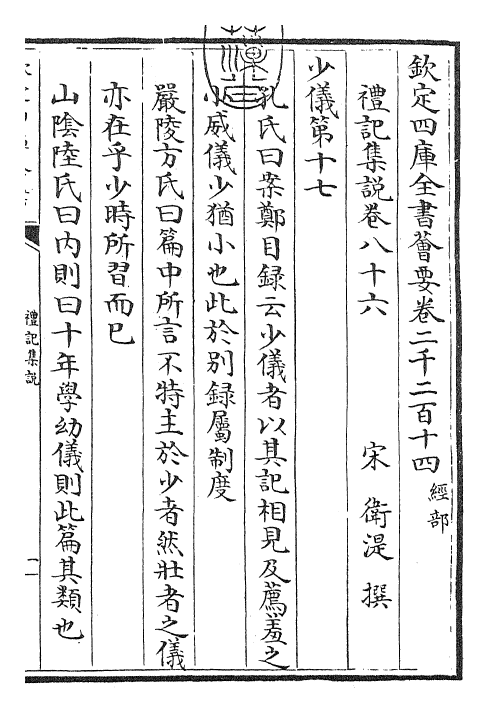 欽定四庫全書薈要卷二千二百十四 經部
禮記集說卷八十六 宋 衛湜 撰
少儀第十七
孔氏曰案鄭目錄云少儀者以其記相見及薦羞之
小威儀少猶小也此於別錄屬制度
嚴陵方氏曰篇中所言不特主於少者然壯者之儀
亦在乎少時所習而已
山陰陸氏曰內則曰十年學幼儀則此篇其類也
禮記集說
一